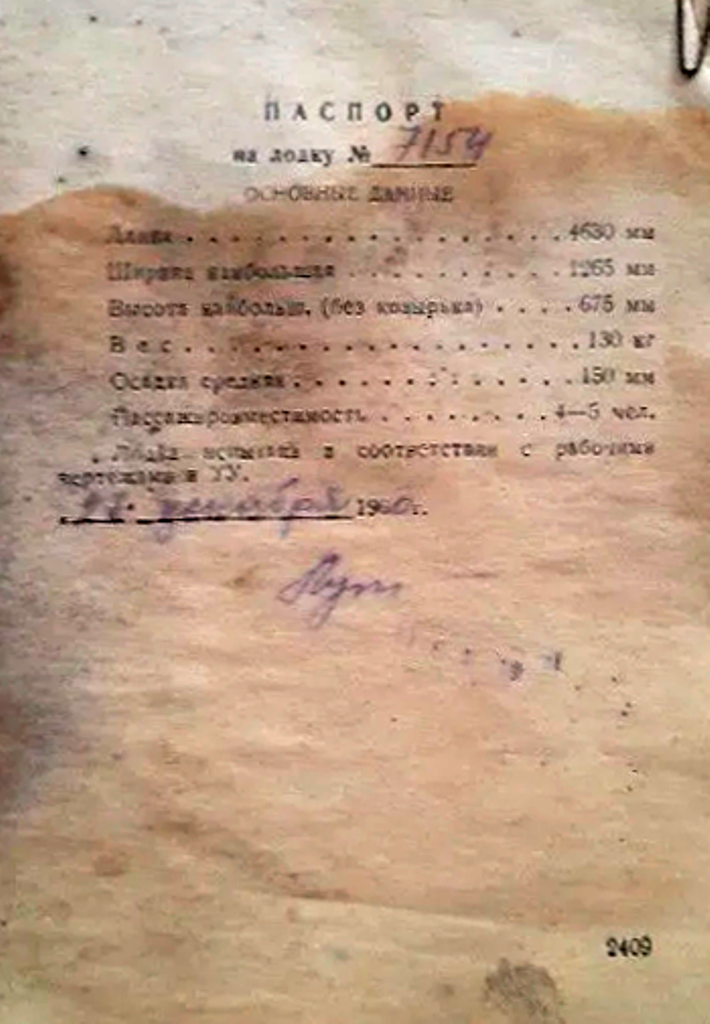 ПАСПОРТ
на лодку № 7154
ОСНОВНЫЕ ДАННЫЕ
Длина . . . . . . . . . . . . . . . . . 4630 мм
Ширина наибольшая . . . . . . . . . . 1265 мм
Высота наибольш. (без козырька) . . . . 675 мм
Вес . . . . . . . . . . . . . . . . . 130 кг
Осадка средняя . . . . . . . . . . . . . 150 мм
Пассажировместимость . . . . . . . . 4—5 чел.
Лодка испытана в соответствии с рабочими
чертежами и ТУ.
декабря 1960 г.
2409